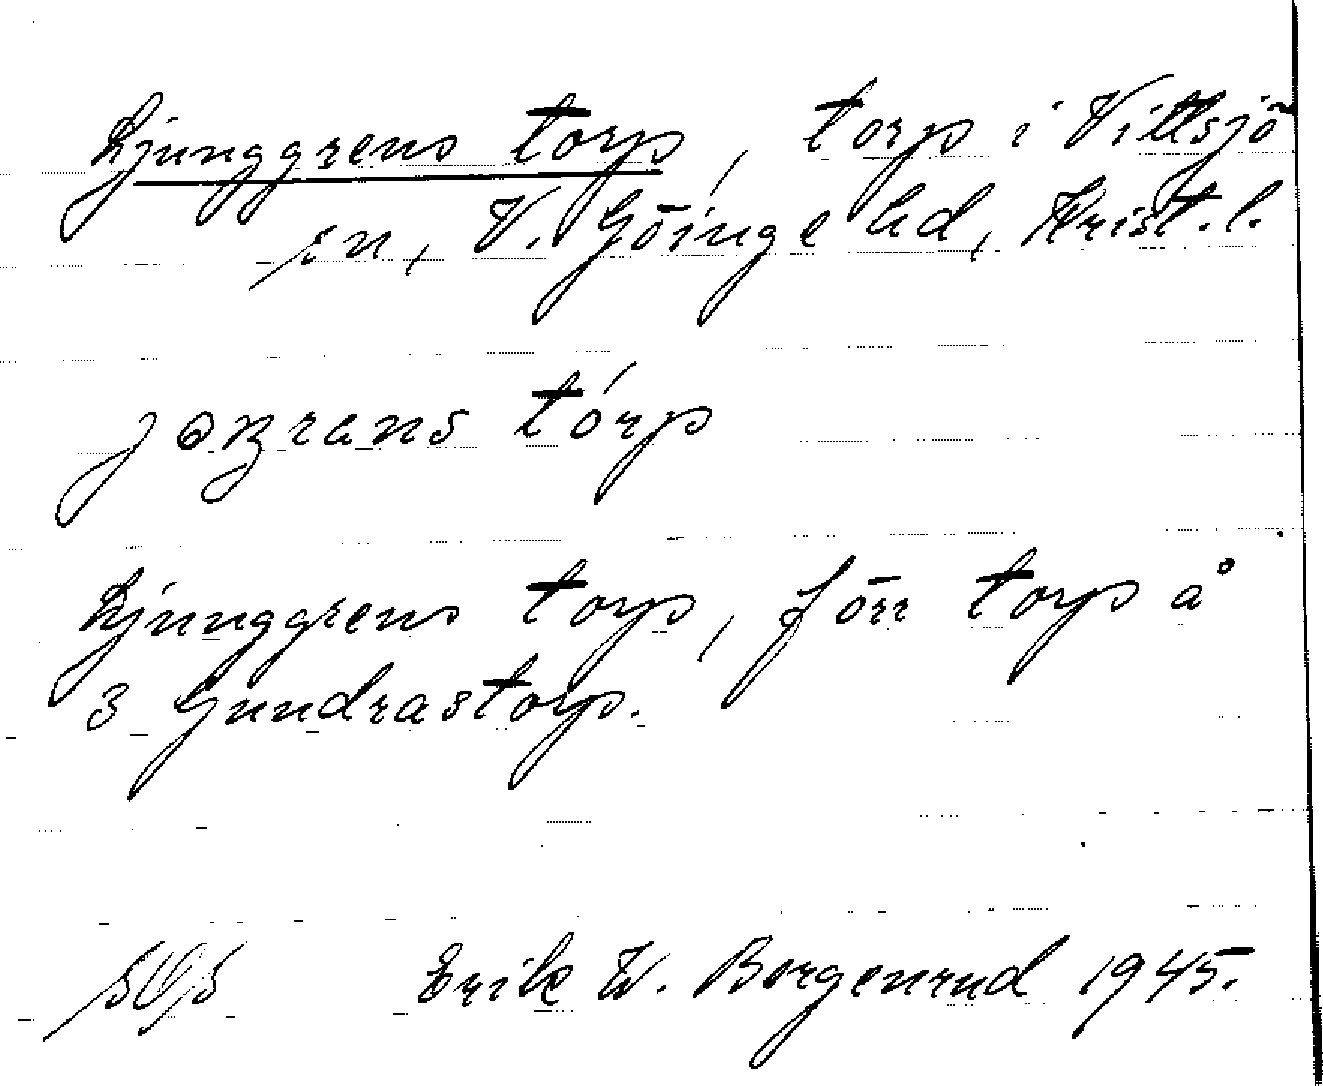 Ljunggrens torp, torp i Vittsjö
sn, V. Göinge hd, Krist. l.
tórp
Ljunggrens torp, förr torp å
3 Gundrastorp.
Erik W. Borgenrud 1945.